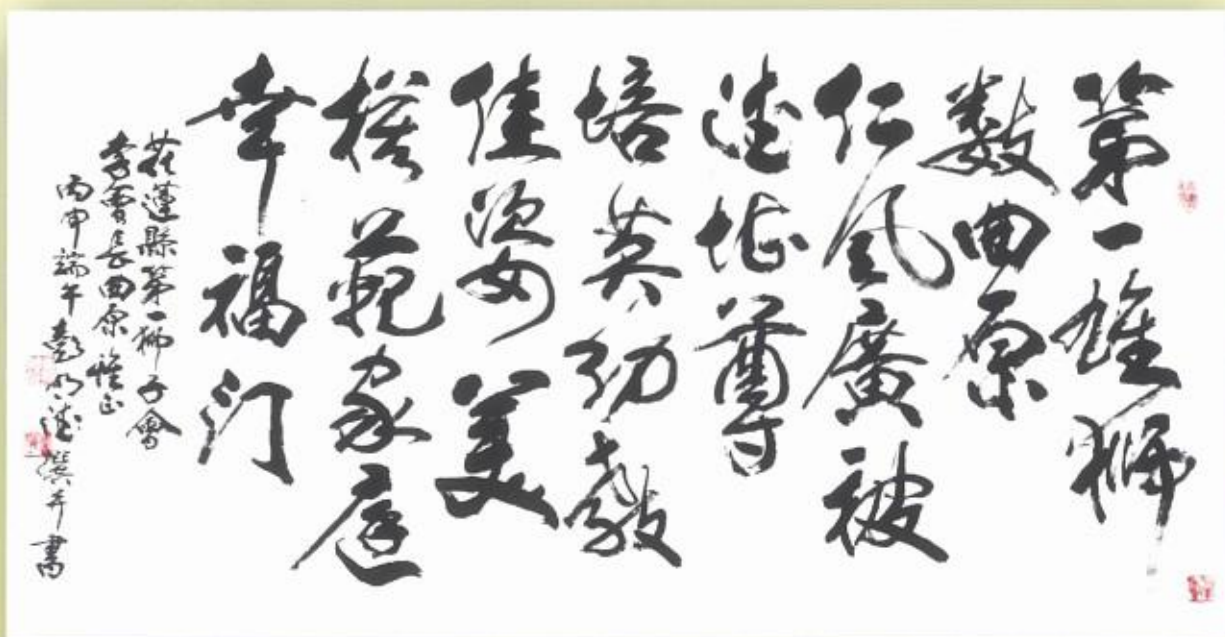 第一雄獅
數曲原
仁風廣被
德望尊
培英幼教
佳姿美
模範家庭
幸福门
花蓮縣第一獅子會
李會長曲原 雅正
丙申端午 彭明德撰并書